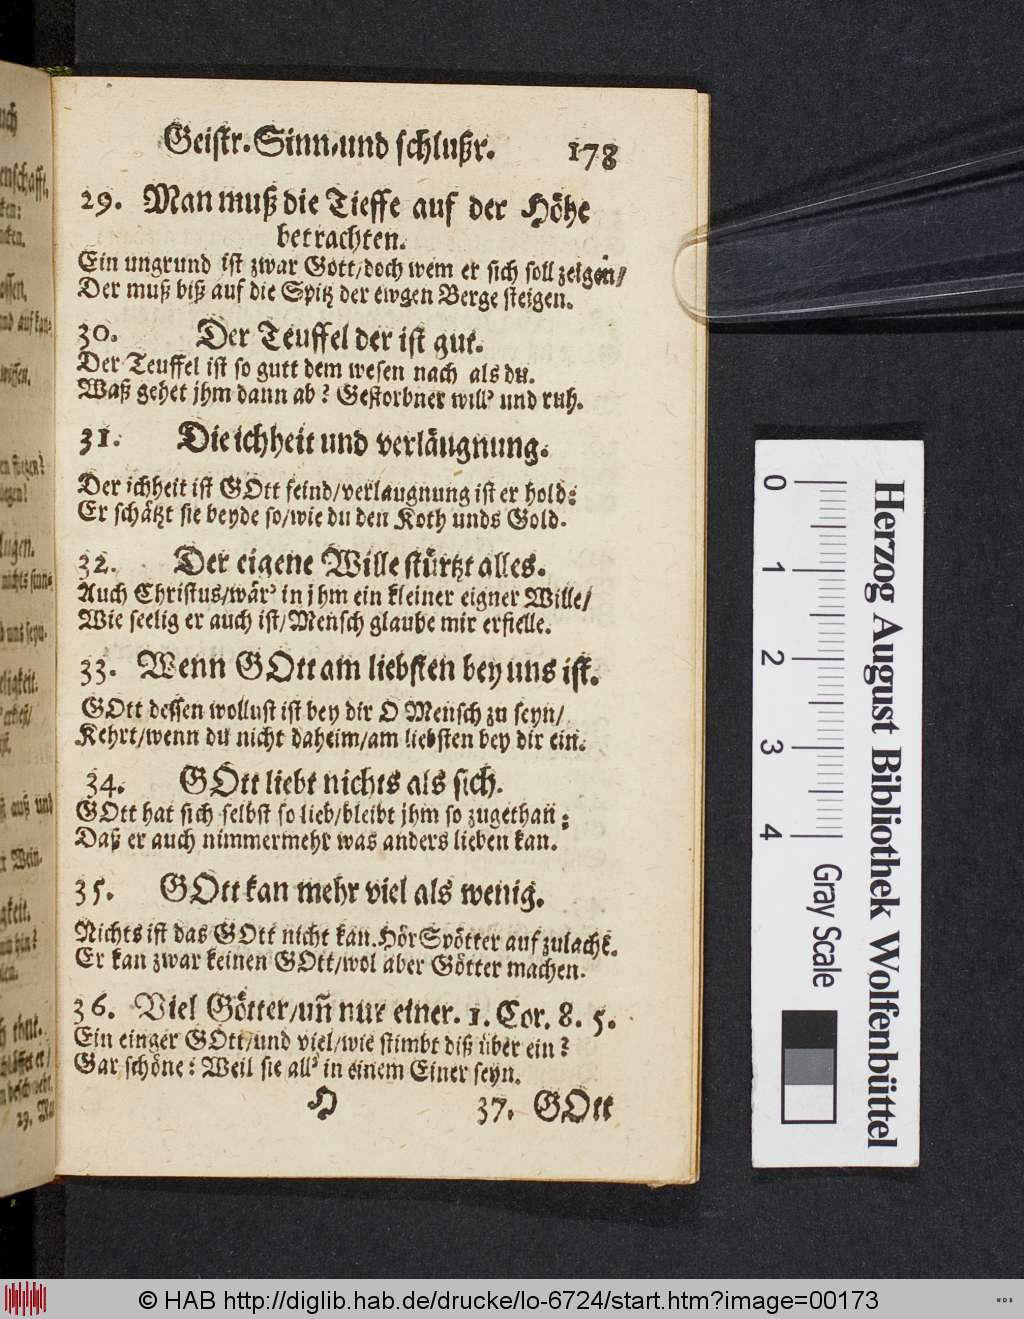 Geistr. Sinn-und schlußr. 178
29. Man muß die Tieffe auf der Höhe
betrachten.
Ein ungrund ist zwar Gott/doch wem er sich soll zeigen/
Der muß biß auf die Spitz der ewgen Berge steigen.
30. Der Teuffel der ist gut.
Der Teuffel ist so gutt dem wesen nach als du.
Waß gehet jhm dann ab? Gestorbner will' und ruh.
31. Die ichheit und verläugnung.
Der ichheit ist GOtt feind/verlaugnung ist er hold:
Er schätzt sie beyde so/wie du den Koth unds Gold.
32. Der eigene Wille stürtzt alles.
Auch Christus/wär' in jhm ein kleiner eigner Wille/
Wie seelig er auch ist/Mensch glaube mir erfielle.
33. Wenn GOtt am liebsten bey uns ist.
GOtt dessen wollust ist bey dir O Mensch zu seyn/
Kehrt/wenn du nicht daheim/am liebsten bey dir ein.
34. GOtt liebt nichts als sich.
GOtt hat sich selbst so lieb/bleibt jhm so zugethan:
Daß er auch nimmermehr was anders lieben kan.
35. GOtt kan mehr viel als wenig.
Nichts ist das GOtt nicht kan. Hör Spötter auf zulacht.
Er kan zwar keinen GOtt/wol aber Götter machen.
36. Viel Götter/un̄ nur einer. 1. Cor. 8. 5.
Ein einger GOtt/und viel/wie stimbt diß über ein?
Gar schöne: Weil sie all' in einem Einer seyn.
H 37. GOtt
0 1 2 3 4
Gray Scale
Herzog August Bibliothek Wolfenbüttel
© HAB http://diglib.hab.de/drucke/lo-6724/start.htm?image=00173